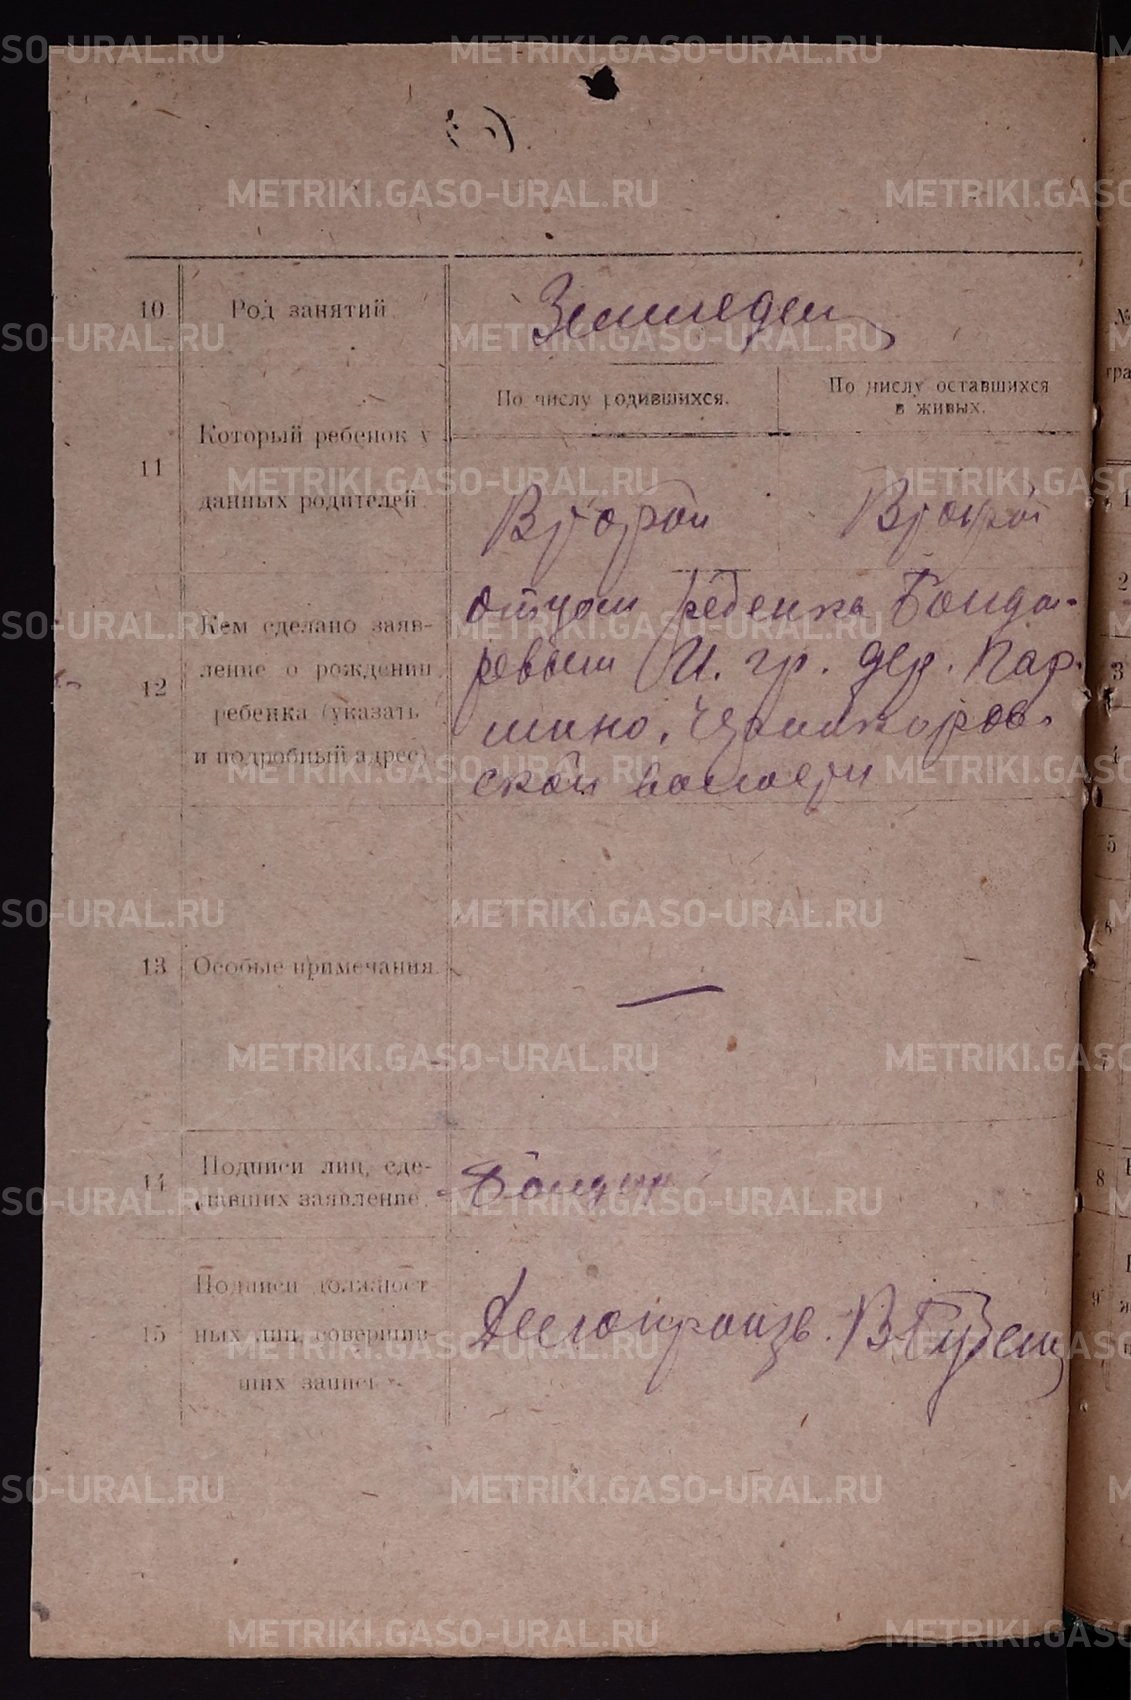 METRIKI.GASO-URAL.RU
10 Род занятий. Земледелец
11 Который ребенок у
данных родителей
По числу родившихся.
По числу оставшихся
в живых.
Второй Второй
12 Кем сделано заяв-
ление о рождении
ребенка (указать
и подробный адрес)
отцом ребенка Бонда-
ревым И. гр. дер. Пар-
шино,
ской волости
13 Особые примечания. —
14 Подписи лиц, сде-
лавших заявление.
Бондар
15 Подписи должност-
ных лиц, совершив-
ших запись
Делопроизв.